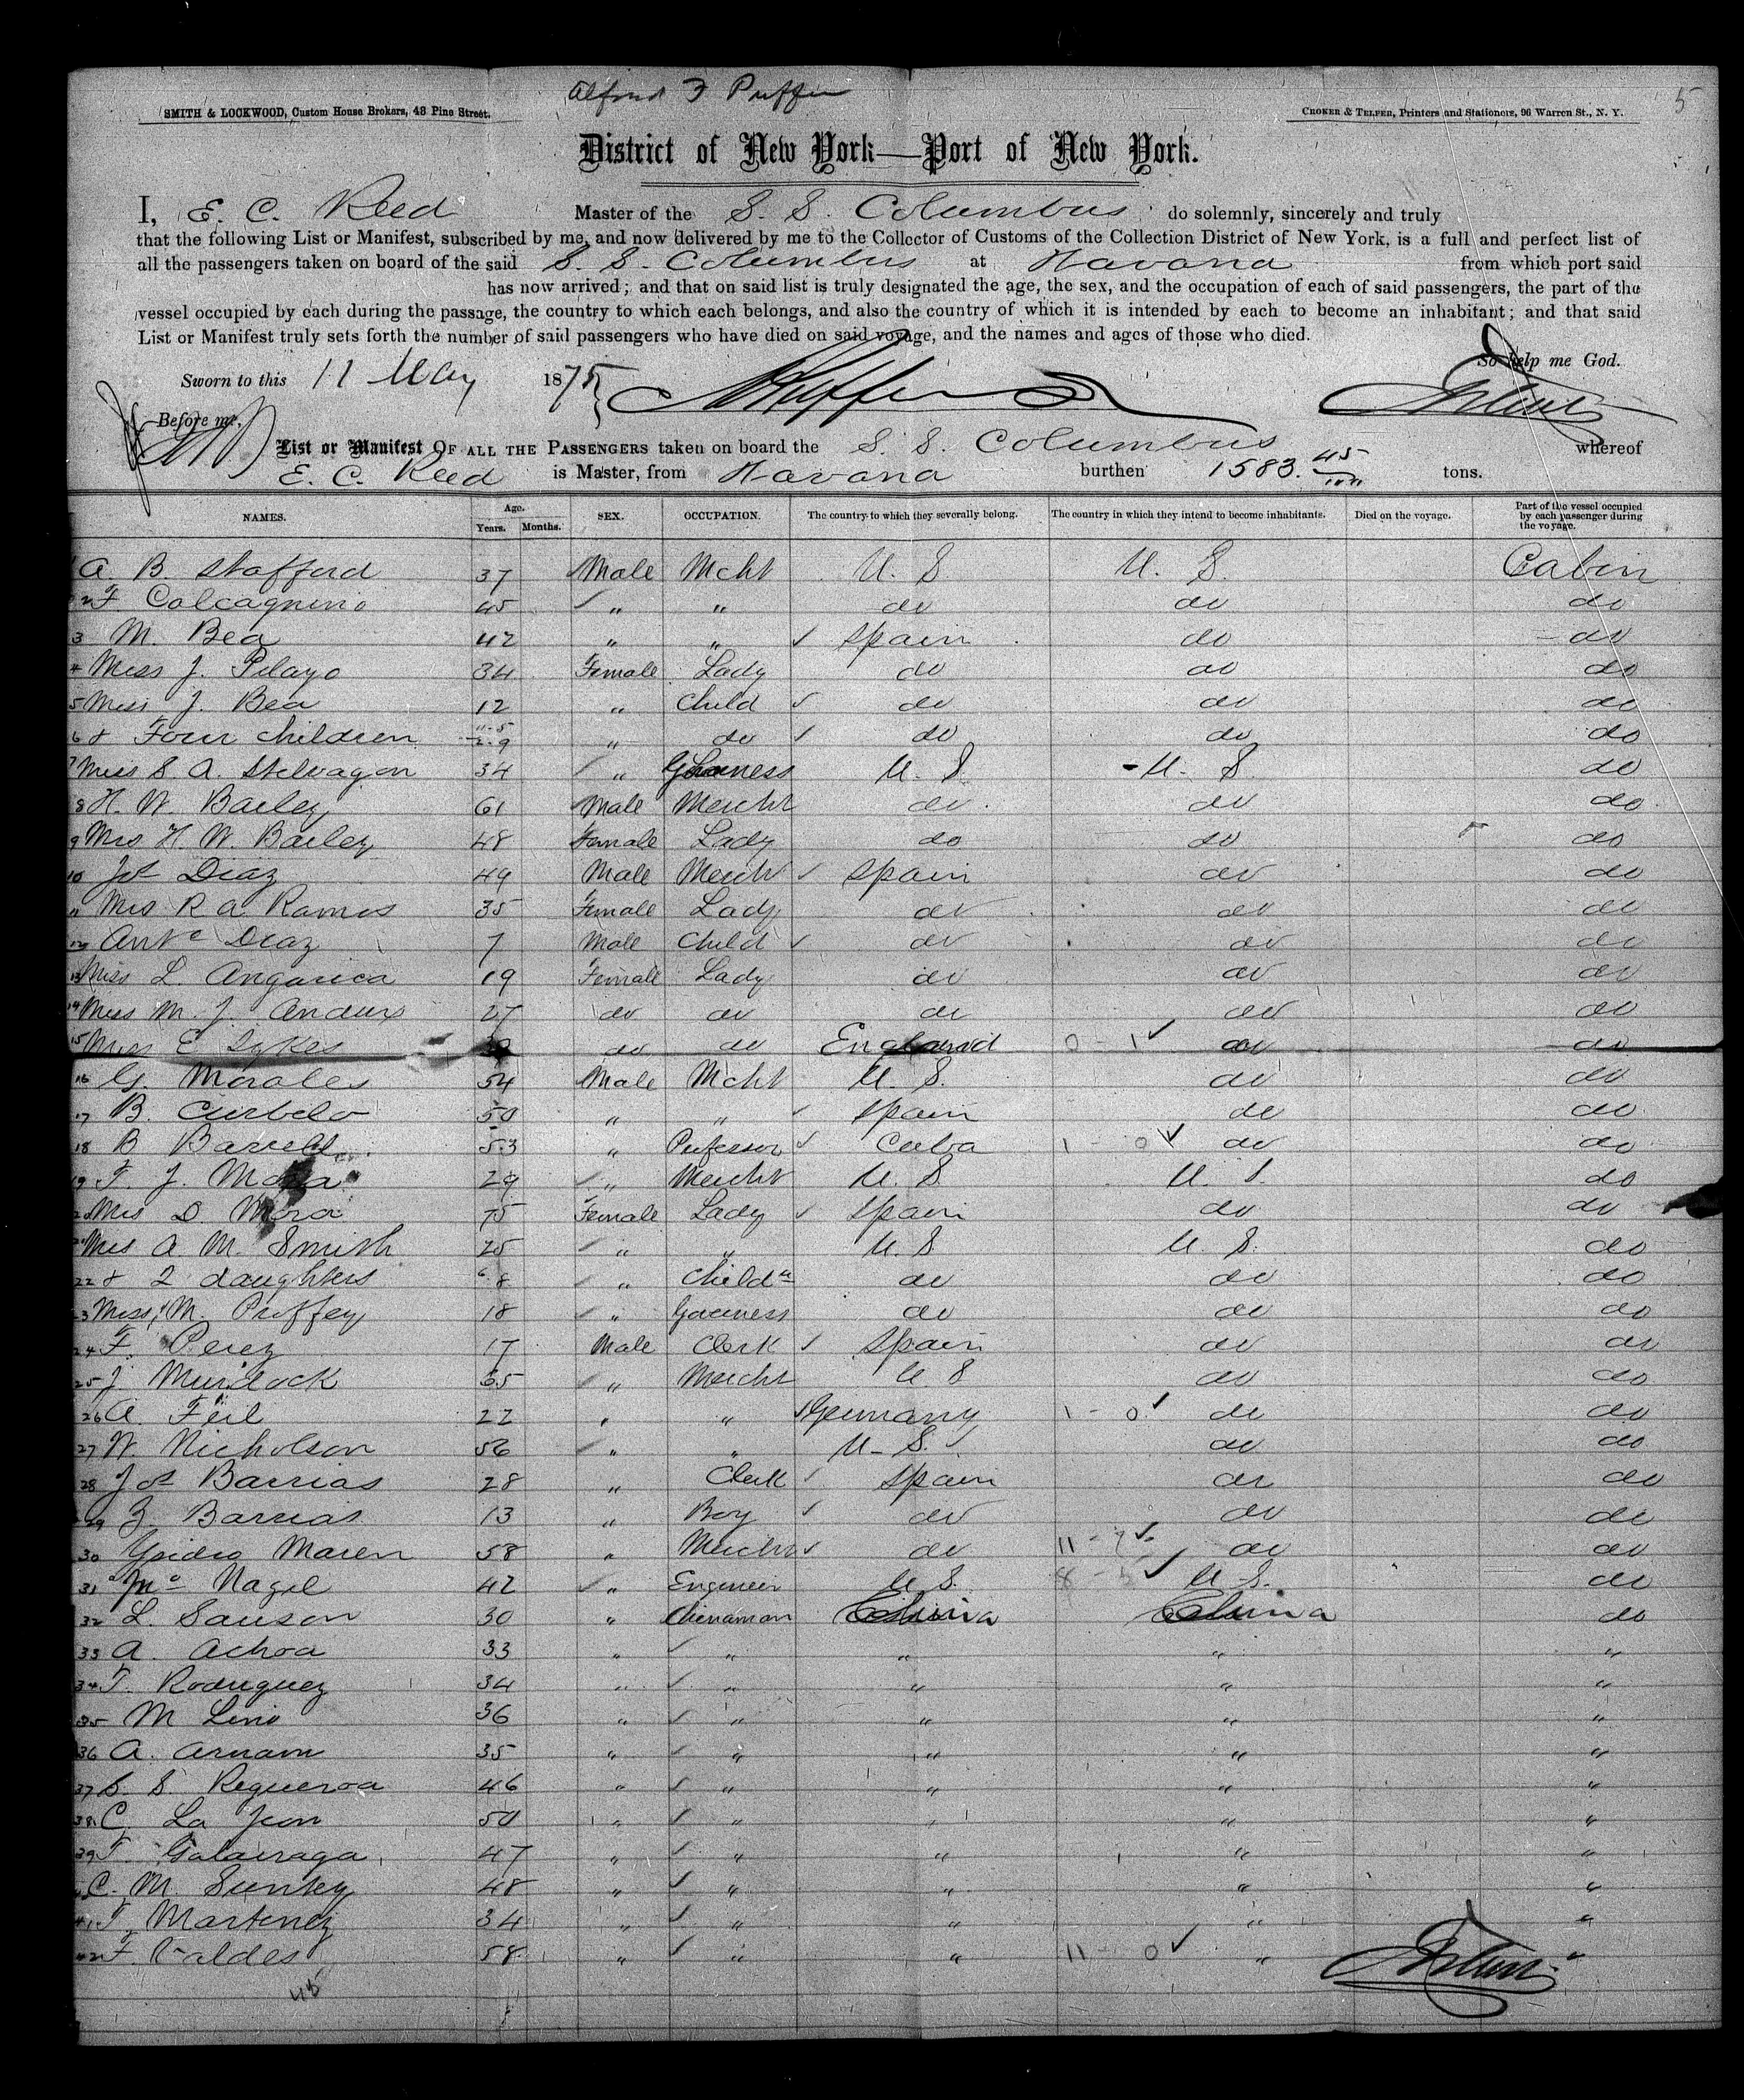 Alfred F Puffer
5
SMITH & LOCKWOOD, Custom House Brokers, 43 Pine Street.
CROKER & TELFER, Printers and Stationers, 96 Warren St., N. Y.
District of New York—Port of New York.
I, E. C. Reed Master of the S. S. Columbus do solemnly, sincerely and truly
that the following List or Manifest, subscribed by me, and now delivered by me to the Collector of Customs of the Collection District of New York, is a full and perfect list of
all the passengers taken on board of the said S. S. Columbus at Havana from which port said
has now arrived; and that on said list is truly designated the age, the sex, and the occupation of each of said passengers, the part of the
vessel occupied by each during the passage, the country to which each belongs, and also the country of which it is intended by each to become an inhabitant; and that said
List or Manifest truly sets forth the number of said passengers who have died on said voyage, and the names and ages of those who died.
So help me God.
Sworn to this 11 May 1875
Before me,
List or Manifest OF ALL THE PASSENGERS taken on board the S. S. Columbus whereof
E. C. Reed is Master, from Havana burthen 1583. 45/100 tons.
NAMES. Age. Years. Months. SEX. OCCUPATION. The country to which they severally belong. The country in which they intend to become inhabitants. Died on the voyage. Part of the vessel occupied by each passenger during the voyage.
1 A. B. Stafford 37 Male Mcht U. S. U. S. Cabin
2 F. Calcagnino 45 " " do do do
3 M. Bea 42 " " Spain do do
4 Miss J. Pelayo 34 Female Lady do do do
5 Miss J. Bea 12 " Child do do do
6 & Four children 11-5 2-9 " do do do do
7 Miss S. A. Stelvagon 34 " Governess U. S. U. S. do
8 H. W. Bailey 61 Male Mercht do do do
9 Mrs H. W. Bailey 48 Female Lady do do do
10 Js Diaz 49 Male Mercht Spain do do
11 Mrs R a Ramos 35 Female Lady do do do
12 Anto Diaz 7 Male Child do do do
13 Miss L. Angarica 19 Female Lady do do do
14 Miss M. J. Andux 27 do do do do do
15 Miss E Sykes do do England 0 - 1 do do
16 G. Morales 54 Male Mcht U. S. do do
17 B. Curbelo 50 " " Spain do do
18 B 53 " Professor Cuba 1 - 0 do do
19 F. J. Mora 29 " Mercht U. S. U. S. do
20 Mrs D. Mora 75 Female Lady Spain do do
21 Mrs A M. Smith 25 " " U. S. U. S. do
22 & 2 daughters 6 8 " Childn do do do
23 Miss M. Puffey 18 " Governess do do do
24 F. Perez 17 Male Clerk Spain do do
25 J Murdock 65 " Mercht U S do do
26 A. Feil 22 " " Germany 1 - 0 do do
27 W Nicholson 56 " " U. S. do do
28 Js Barrias 28 " Clerk Spain do do
29 Z. Barrias 13 " Boy do do do
30 Ysidro Maren 58 " Mercht do 11 - 7 do do
31 Nagel 42 " Engineer U. S. 8 - 5 U. S. do
32 L. Sauson 30 " Chinaman China China do
33 A. Achoa 33 " " " " "
34 T. Rodriguez 34 " " " " "
35 M Lino 36 " " " " "
36 A. Arnam 35 " " " " "
37 S. S. Regueroa 46 " " " " "
38 C. La Jeon 50 " " " " "
39 F. Galairaga 47 " " " " "
40 C. M. Sunky 48 " " " " "
41 F. Martinez 34 " " " " "
42 F. Valdes 58 " " " 11 - 0 " "
45